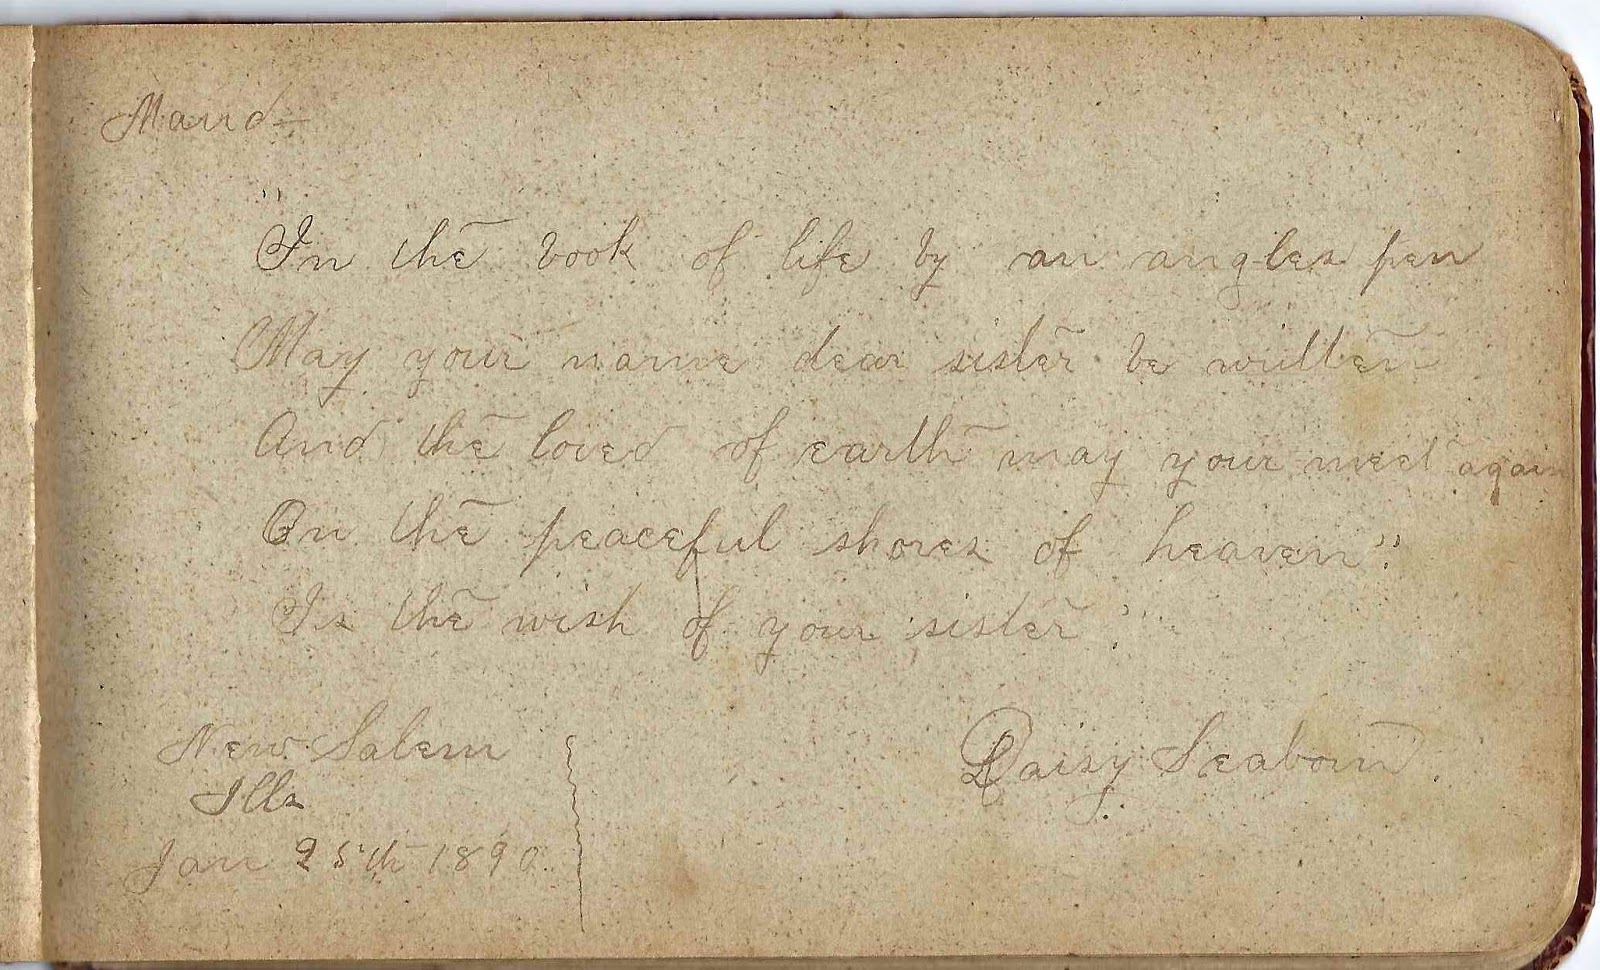 Maud—
"In the book of life by an angles pen
May your name dear sister be written
And the loved of earth may your meet again
On the peaceful shores of heaven".
Is the wish of your sister.
New Salem
Ills
Jan 25th 1890.
Daisy Seaborn.